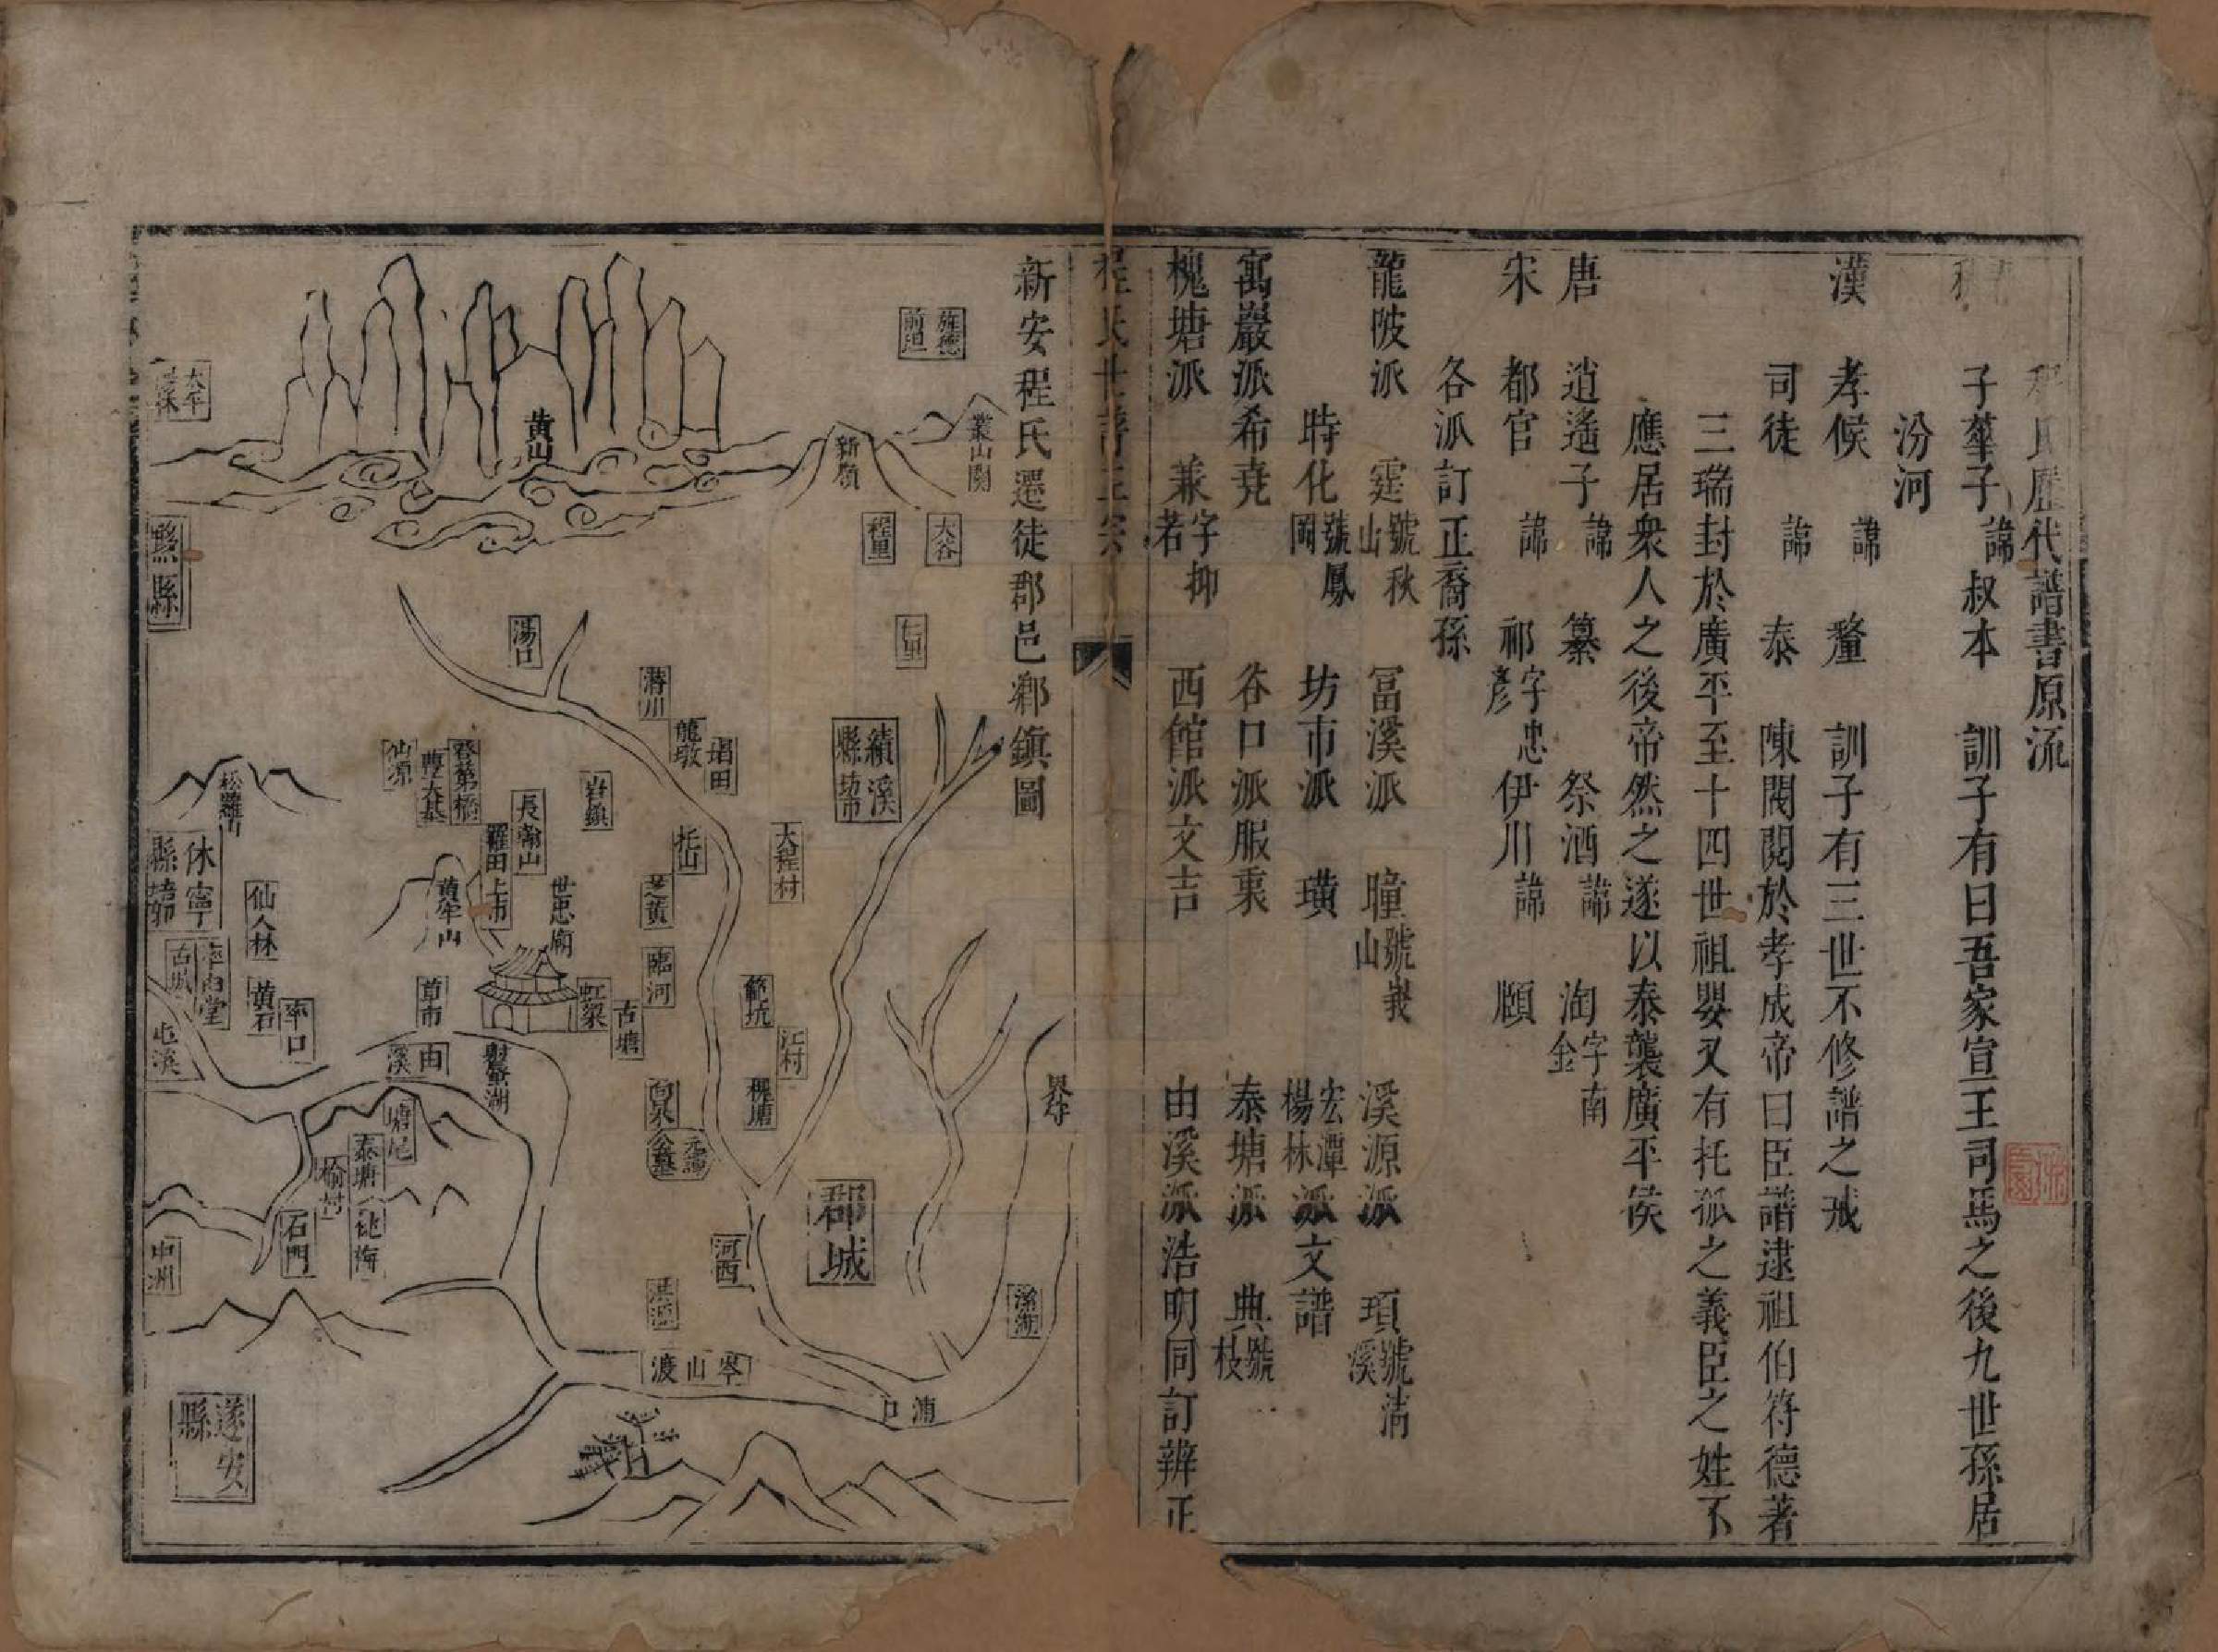 程氏歷代譜書原流
子華子諱叔本　訓子有曰吾家宣王司馬之後九世孫居
汾河
漢　孝候　諱　釐　訓子有三世不修譜之戒
司徒　諱　泰　陳閥閱於孝成帝曰臣譜逮祖伯符德著
三瑞封於廣平至十四世祖嬰又有托孤之義臣之姓不
應居衆人之後帝然之遂以泰襲廣平侯
唐　逍遙子　諱　纂　祭酒　諱　淘字南金
宋　都官　諱　祁字忠彥　伊川　諱　頤
各派訂正裔孫
龍陂派　霆號秋山　冨溪派　瞳號峩山　溪源派　瑣號淸溪
時化號鳳岡　坊市派　璜　宏潭楊林派文譜
寓巖派希堯　谷口派服秉　泰塘派　典號枝
槐塘派　兼字抑若　西館派文吉　由溪派浩明同訂辨正
程氏世譜正宗
新安程氏遷徒郡邑鄕鎮圖
旌德
前坦
叢山關
新嶺
大谷
程里
仁里
黃山
黟縣
湯口
潛川
龍墩
堨田
績溪
縣坊市
岩鎮
托山
大程村
仙源
登第橋
長翰山
羅田上市
世忠廟
黃牢山
芝黃
臨河
範坑
江村
槐塘
松蘿山
休寧
仙人林
黃石
率口
古城
屯溪
草市
虹梁
古塘
由溪
射蜃湖
塘尾
泰塘
榆村
石門
中洲
界寺
郡城
河西
洪源
岑山渡
浦口
遂安縣